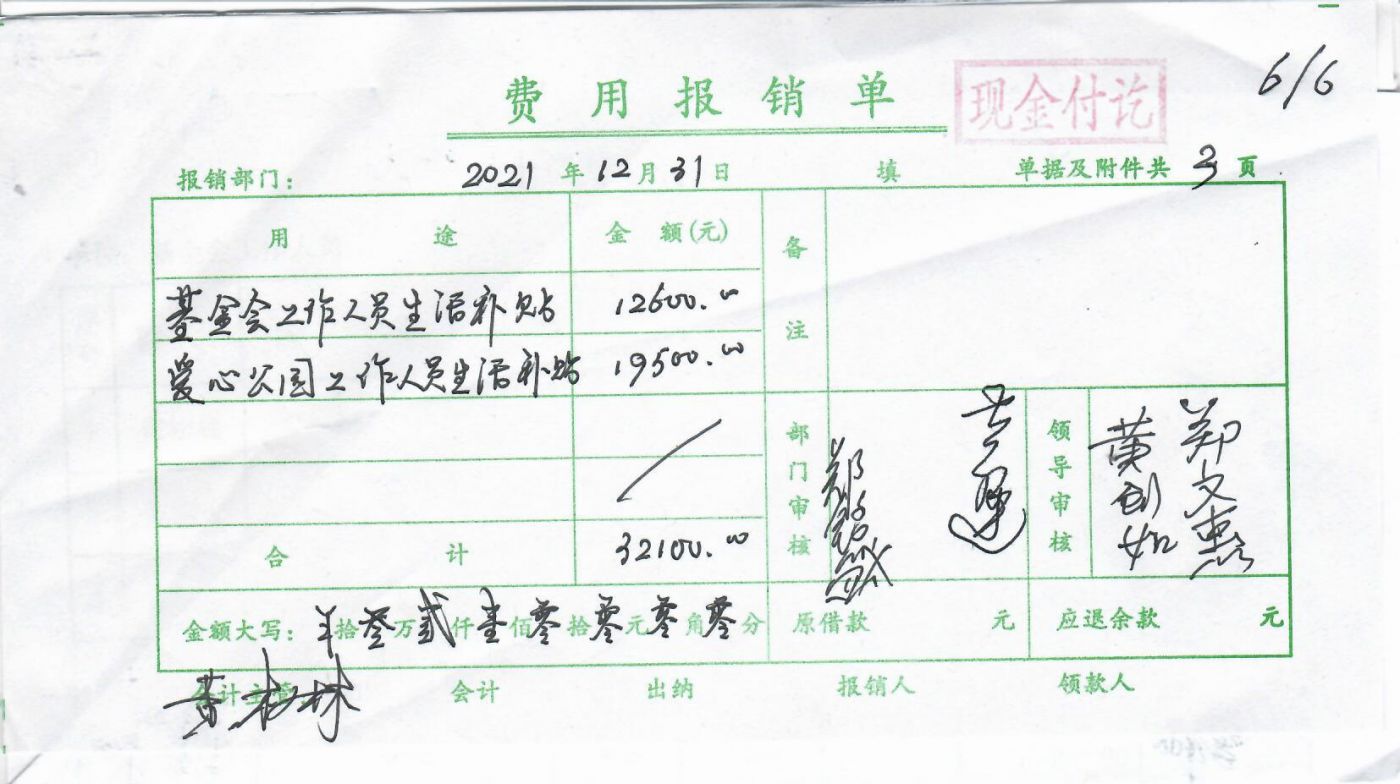 费用报销单
现金付讫
6/6
报销部门： 2021 年 12 月 31 日 填 单据及附件共 3 页
用途 金额(元) 备注
基金会工作人员生活补贴 12600.00
爱心公园工作人员生活补贴 19500.00
部门审核 领导审核 郑文惠
合计 32100.00
金额大写： 拾叁万贰仟壹佰零拾零元零角零分 原借款 元 应退余款 元
会计主管 会计 出纳 报销人 领款人